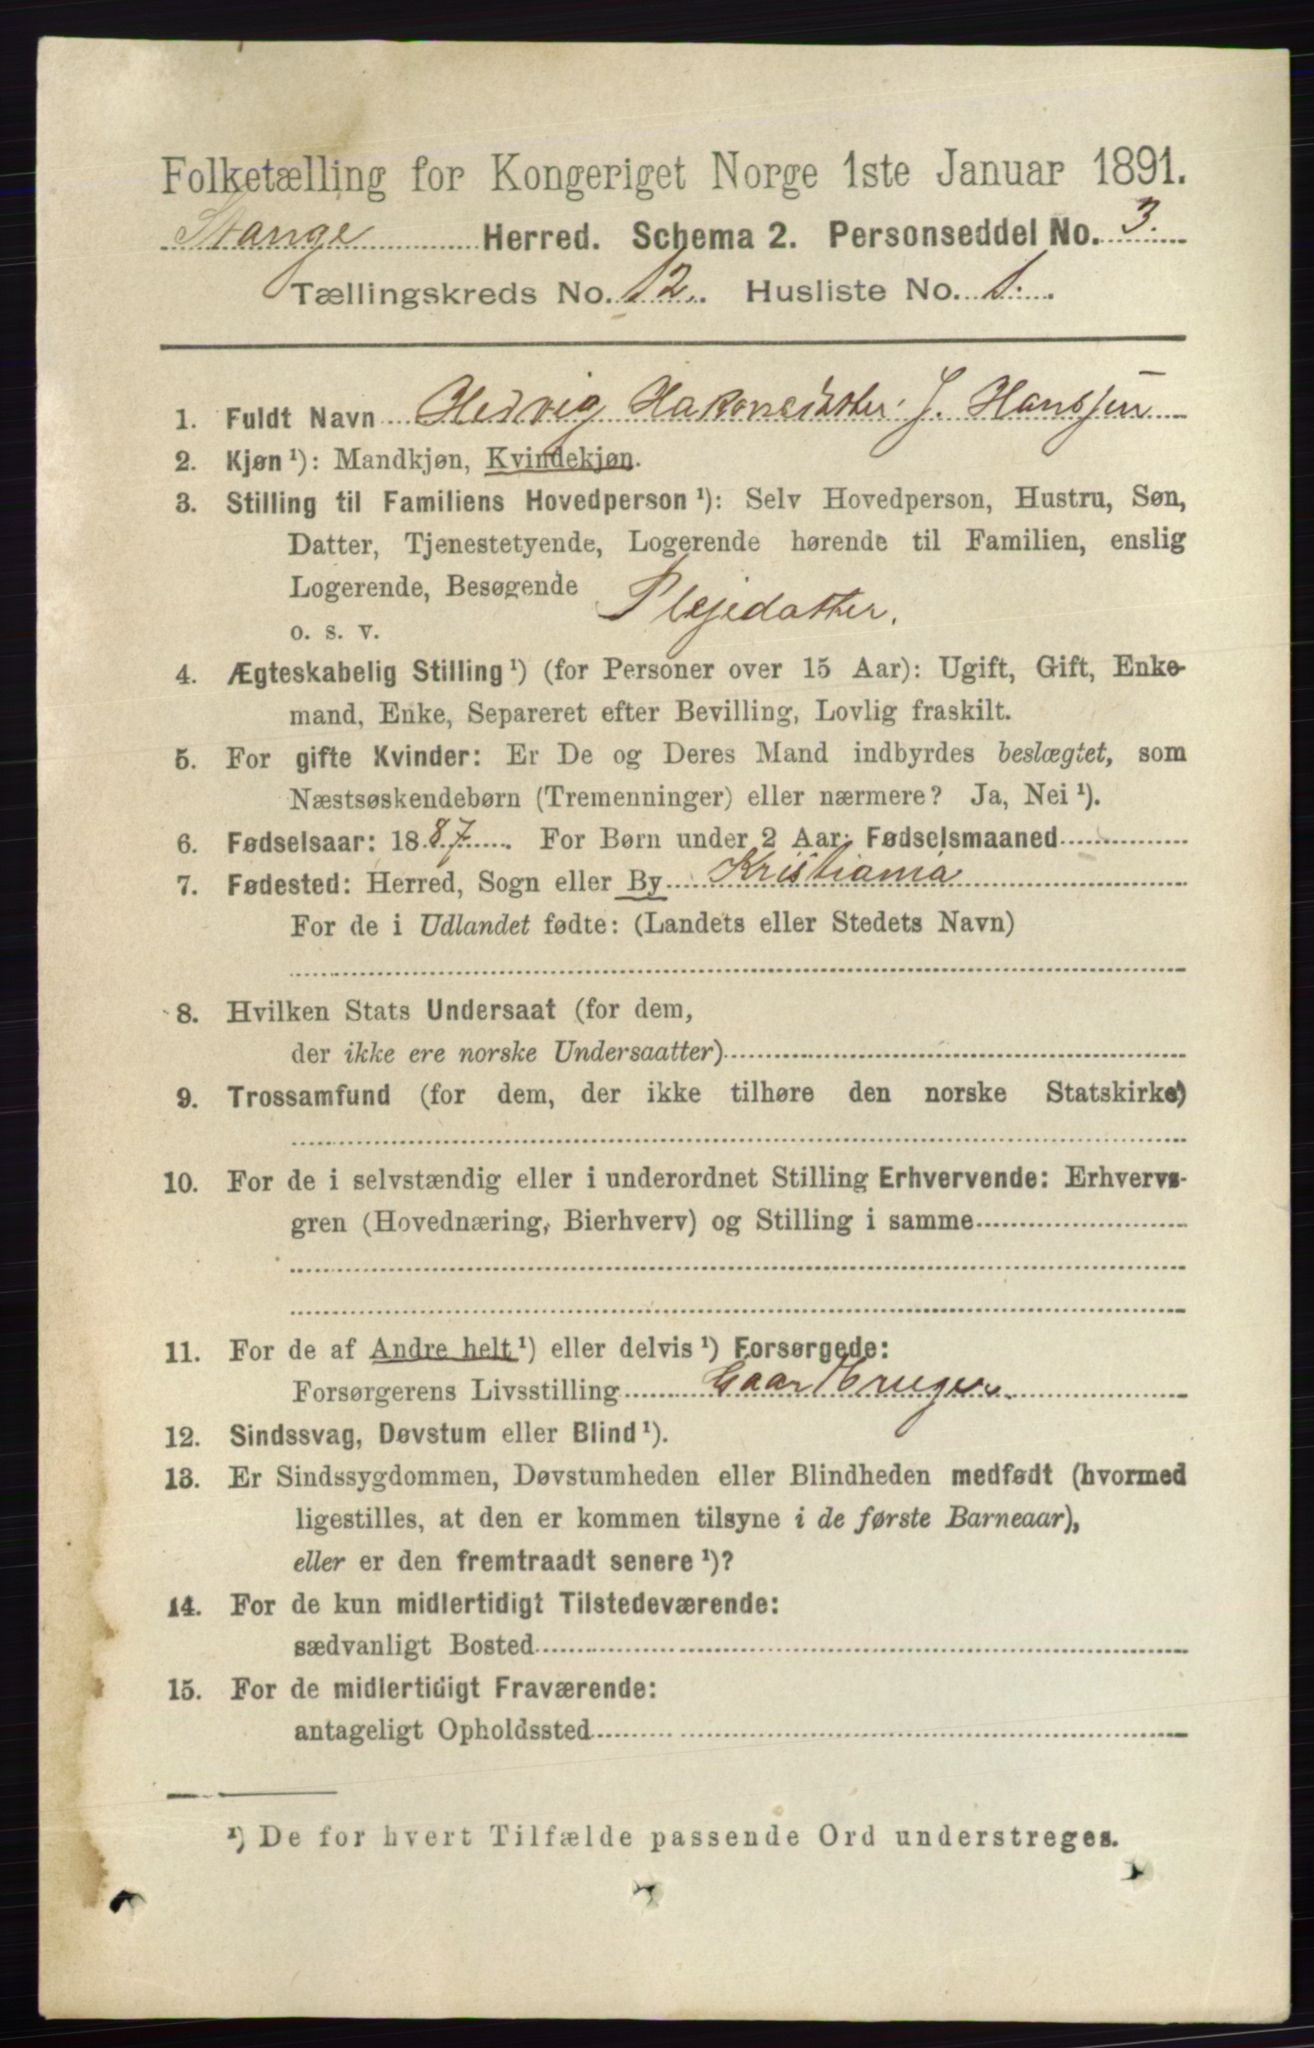 Folketælling for Kongeriget Norge 1ste Januar 1891.
Stange Herred. Schema 2. Personseddel No. 3.
Tællingskreds No. 12. Husliste No. 1.
1. Fuldt Navn Hedvig J. Hanssen
2. Kjøn ¹): Mandkjøn, Kvindekjøn.
3. Stilling til Familiens Hovedperson ¹): Selv Hovedperson, Hustru, Søn,
Datter, Tjenestetyende, Logerende hørende til Familien, enslig
Logerende, Besøgende Plejedatter.
o. s. v.
4. Ægteskabelig Stilling ¹) (for Personer over 15 Aar): Ugift, Gift, Enke-
mand, Enke, Separeret efter Bevilling, Lovlig fraskilt.
5. For gifte Kvinder: Er De og Deres Mand indbyrdes beslægtet, som
Næstsøskendebørn (Tremenninger) eller nærmere? Ja, Nei ¹).
6. Fødselsaar: 1887. For Børn under 2 Aar: Fødselsmaaned
7. Fødested: Herred, Sogn eller By Kristiania
For de i Udlandet fødte: (Landets eller Stedets Navn)
8. Hvilken Stats Undersaat (for dem,
der ikke ere norske Undersaatter)
9. Trossamfund (for dem, der ikke tilhøre den norske Statskirke)
10. For de i selvstændig eller i underordnet Stilling Erhvervende: Erhvervs-
gren (Hovednæring, Bierhverv) og Stilling i samme
11. For de af Andre helt ¹) eller delvis ¹) Forsørgede:
Forsørgerens Livsstilling Gaardbruger.
12. Sindssvag, Døvstum eller Blind ¹).
13. Er Sindssygdommen, Døvstumheden eller Blindheden medfødt (hvormed
ligestilles, at den er kommen tilsyne i de første Barneaar),
eller er den fremtraadt senere ¹)?
14. For de kun midlertidigt Tilstedeværende:
sædvanligt Bosted
15. For de midlertidigt Fraværende:
antageligt Opholdssted
¹) De for hvert Tilfælde passende Ord understreges.